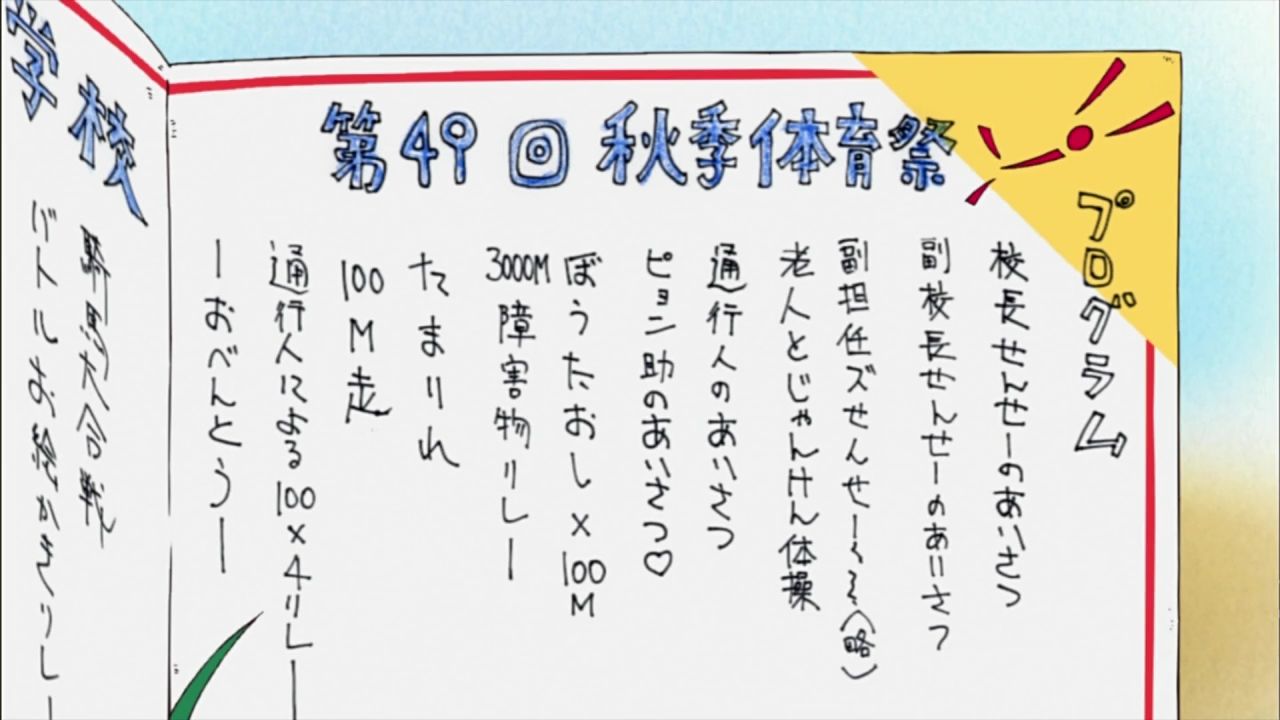 第49回秋季体育祭
プログラム
校長せんせーのあいさつ
副校長せんせーのあいさつ
副担任ズせんせー〜〜〜(略)
老人とじゃんけん体操
通行人のあいさつ
ピョン助のあいさつ♡
ぼうたおし×100M
3000M障害物リレー
たまりれ
100M走
通行人による100×4リレー
ーおべんとうー
学校
騎馬大合戦
バトルお絵かきリレー